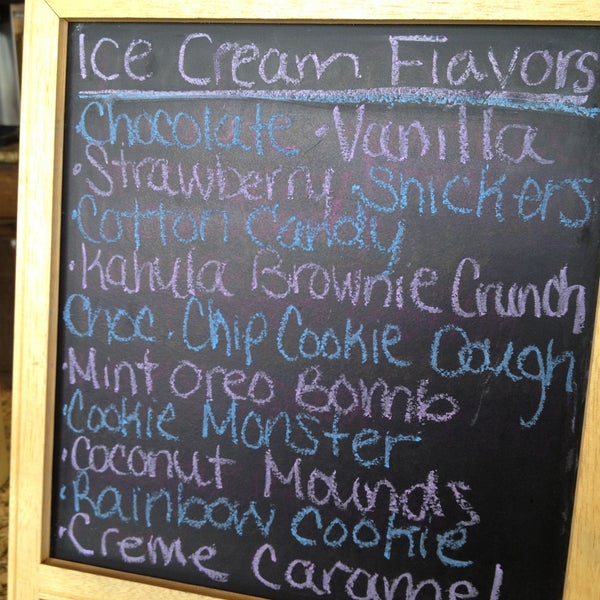 Ice Cream Flavors
·Chocolate ·Vanilla
·Strawberry ·Snickers
·Cotton Candy
·Kahula Brownie Crunch
Choc. Chip Cookie Dough
·Mint Oreo Bomb
·Cookie Monster
·Coconut Mounds
·Rainbow Cookie
·Creme Caramel